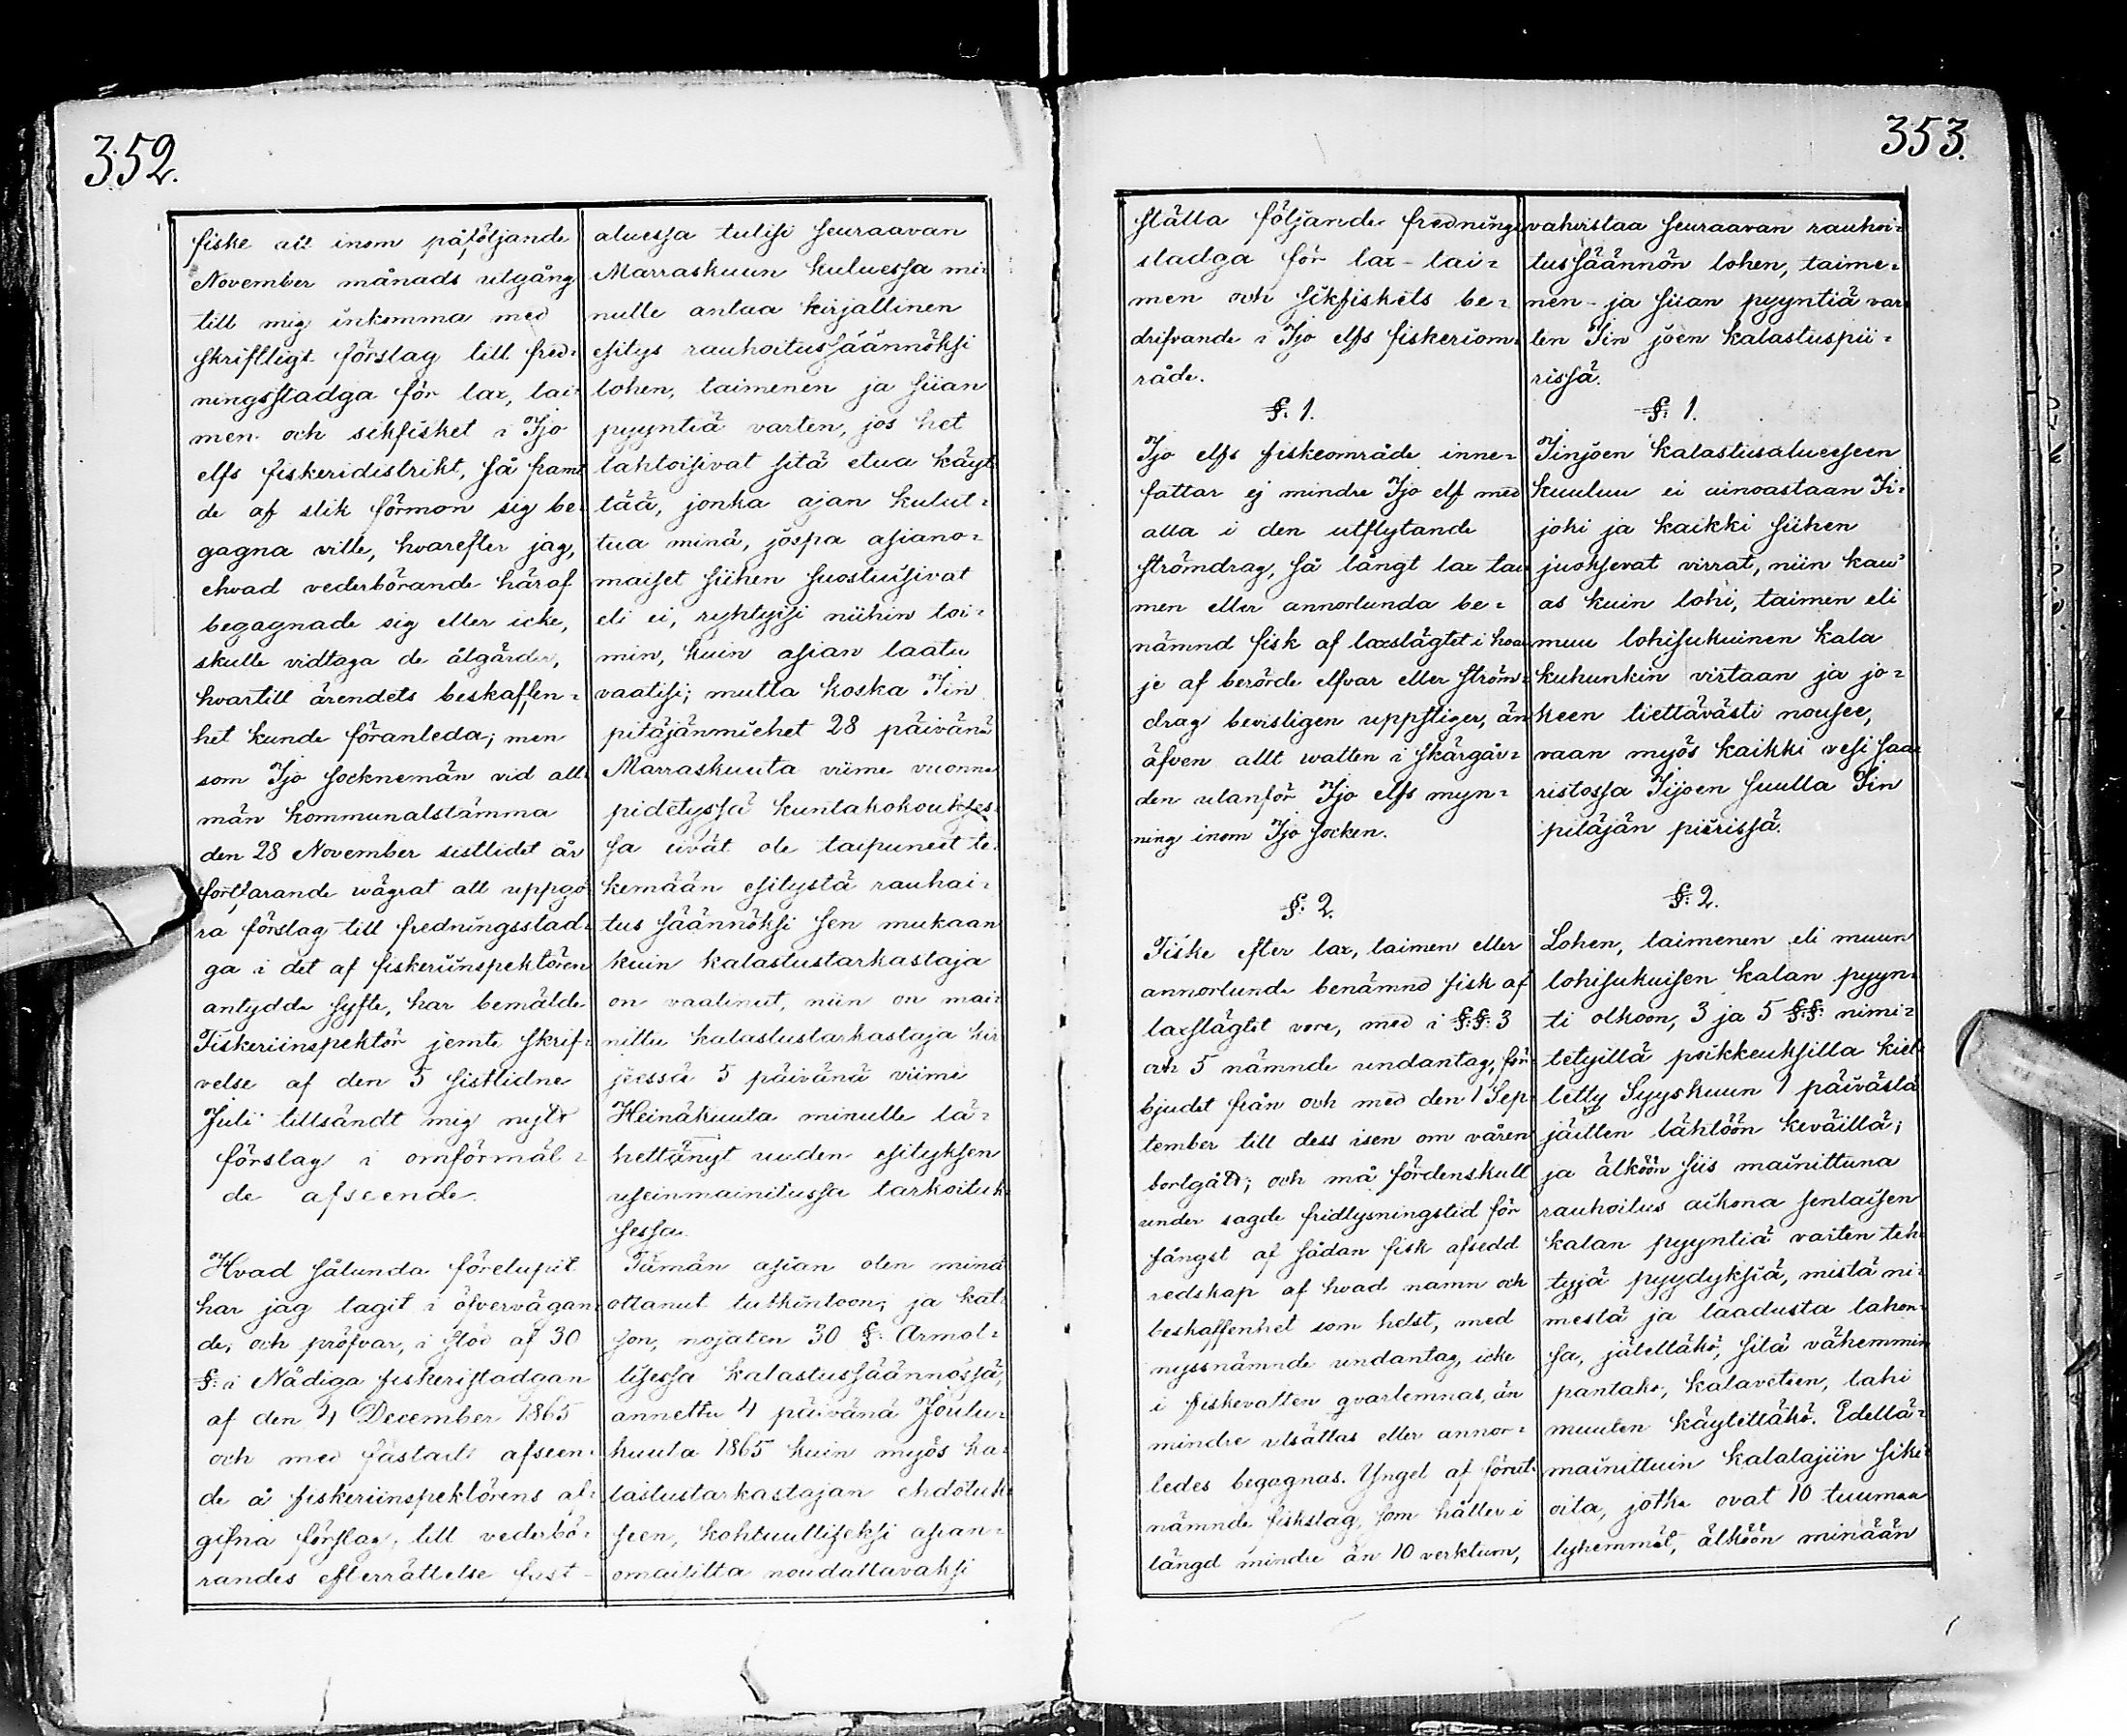 352.
fiske att inom påföljande
November månads utgång
till mig inkomma med
skriftligt förslag till fred-
ningsstadga för lax, tai-
men och sikfisket i Ijo
elfs fiskeridistrikt, så fram
de af slik förmon sig be-
gagna ville, hvarefter jag,
ehvad vederbörande häraf
begagnade sig eller icke,
skulle vidtaga de åtgärder,
hvartill ärendets beskaffen-
het kunde föranleda; men
som Ijo socknemän vid all-
män kommunalstämma
den 28 November sistlidet år
fortfarande wägrat att uppgö-
ra förslag till fredningsstad-
ga i det af fiskeriinspektören
antydda syfte, har bemälde
Fiskeriinspektör jemte skrif-
velse af den 5 sistlidne
Juli tillsändt mig nytt
förslag i omförmäl-
de afseende.
Hvad sålunda förelupit
har jag tagit i öfvervägan-
de, och pröfvar, i stöd af 30
§: i Nådiga fiskeristadgan
af den 4 December 1865
och med fästadt afseen-
de å fiskeriinspektörens af-
gifna förslag, till vederbö-
randes efterrättelse fast-
aluessa tulisi seuraavan
Marraskuun kuluessa mi-
nulle antaa kirjallinen
esitys rauhoitussäännöksi
lohen, taimenen ja siian
pyyntiä varten, jos het
tahtoisivat sitä etua käyt
tää, jonka ajan kulut-
tua minä, jospa asiano-
maiset siihen suostuisivat
eli ei, ryhtyisi niihin toi-
min, kuin asian laatu
vaatisi; mutta koska Iin
pitäjänmiehet 28 päivänä
Marraskuuta viime vuonna
pidetyssä kuntakokoukses-
sa eivät ole taipuneet te-
kemään esitystä rauhai-
tus säännöksi sen mukaan
kuin kalastustarkastaja
on vaatinut, niin on mai-
nittu kalastustarkastaja kir
jeessä 5 päivänä viime
Heinäkuuta minulle lä-
hettänyt uuden esityksen
useinmainitussa tarkoituk-
sessa.
Tämän asian olen minä
ottanut tutkintoon; ja kat-
son, nojaten 30 §: Armol-
lisessa kalastussäännössä,
annettu 4 päivänä Joulu-
kuuta 1865 kuin myös ka-
lastustarkastajan ehdotuk-
seen, kohtuulliseksi asian-
omaisilta noudattavaksi
353.
ställa följande frednings
stadga för lax- tai-
men och sikfiskets be-
drifvande i Ijo elfs fiskeriom-
råde.
§: 1.
Ijo elfs fiskeområde inne-
fattar ej mindre Ijo elf med
alla i den utflytande
strömdrag, så långt lax tai
men eller annorlunda be-
nämnd fisk af laxslägtet i hvar
je af berörde elfvar eller ström-
drag bevisligen uppstiger, än
äfven allt watten i skärgår-
den utanför Ijo elfs myn-
ning inom Ijo socken.
§: 2.
Fiske efter lax, taimen eller
annorlunda benämnd fisk af
laxslägtet vore, med i §:§: 3
och 5 nämnde undantag, för-
bjudet från och med den 1 Sep-
tember till dess isen om våren
bortgått; och må fördenskull
under sagde fridlysningstid för
fångst af sådan fisk afsedd
redskap af hvad namn och
beskaffenhet som helst, med
nyssnämnde undantag, icke
i fiskevatten qvarlemnas, än
mindre utsättas eller annor-
ledes begagnas. Yngel af förut-
nämnde fiskslag, som håller i
längd mindre än 10 verktum,
vahvistaa seuraavan rauhoi-
tussäännön lohen, taime-
nen- ja siian pyyntiä var-
ten Iin joen kalastuspii-
rissä.
§: 1.
Iinjoen kalastusalueeseen
kuuluu ei ainoastaan Ii-
joki ja kaikki siihen
juoksevat virrat, niin kau-
as kuin lohi, taimen eli
muu lohisukuinen kala
kuhunkin virtaan ja jo-
keen tiettävästi nousee,
vaan myös kaikki vesi saa-
ristossa Iijoen suulla Iin
pitäjän piirissä.
§: 2.
Lohen, taimenen eli muun
lohisukuisen kalan pyyn-
ti olkoon, 3 ja 5 §:§: nimi-
tetyillä poikkeuksilla kiel-
letty Syyskuun 1 päivästä
jäitten lähtöön keväillä;
ja älköön siis mainittuna
rauhoitus aikona senlaisen
kalan pyyntiä varten teh-
tyjä pyydyksiä, mistä ni-
mestä ja laadusta tahon-
sa, jätettäkö, sitä vähemmin
pantako, kalaveteen, tahi
muuten käytettäkö. Edellä-
mainittuin kalalajiin siki-
öitä, jotka ovat 10 tuumaa
lyhemmät, älköön minään